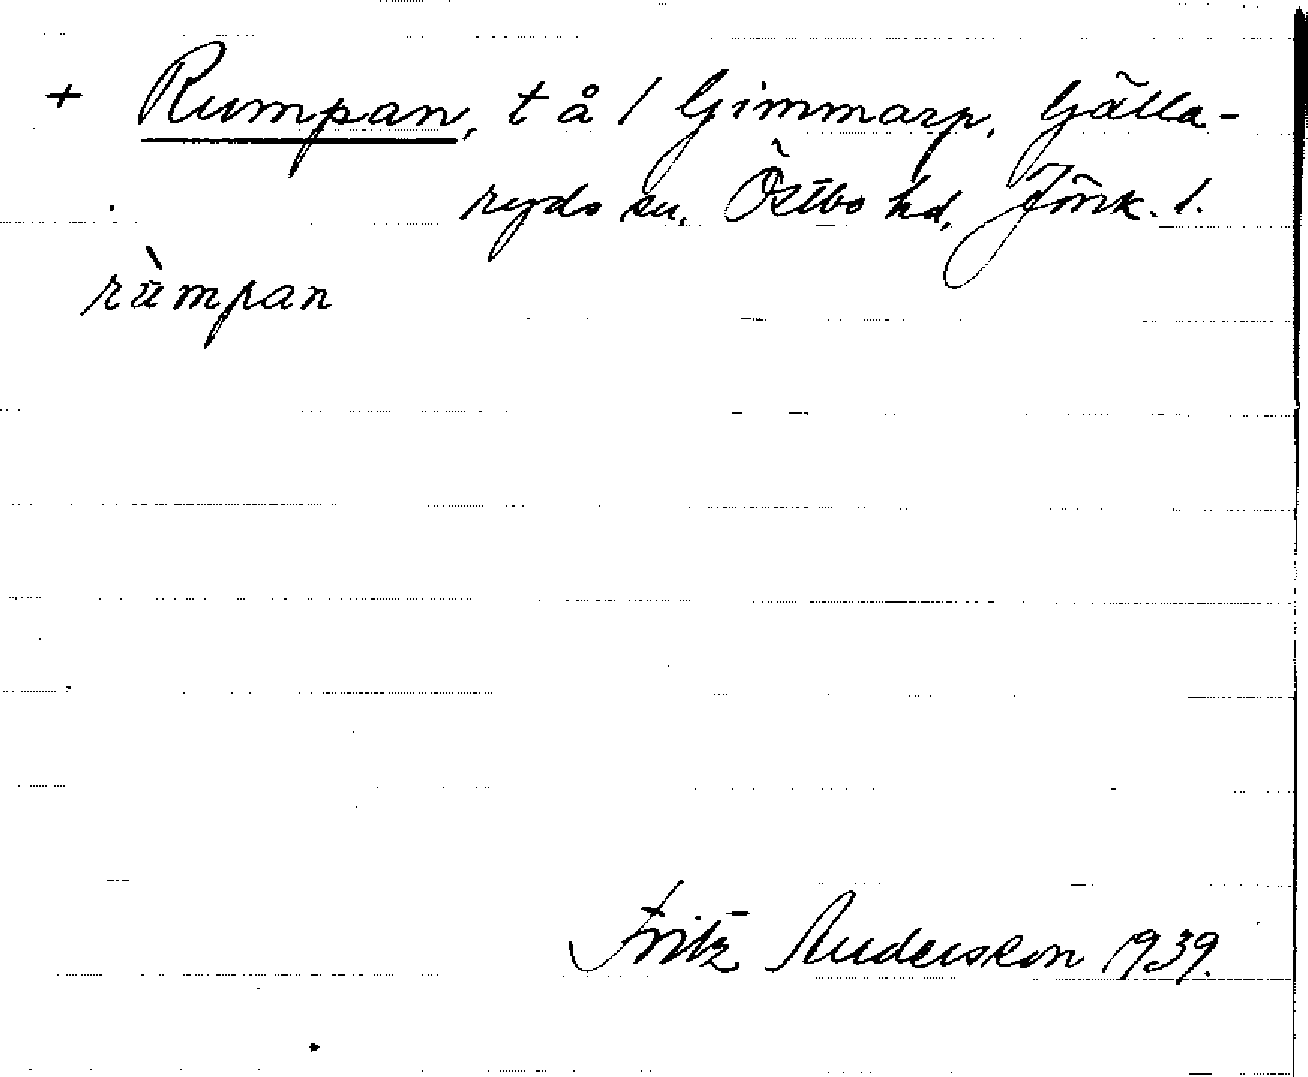 + Rumpan, t å / Gimmarp, Gälla-
ryds sn, Östbo hd, Jönk. l.
rùmpan
Fritz Anderson 1939.